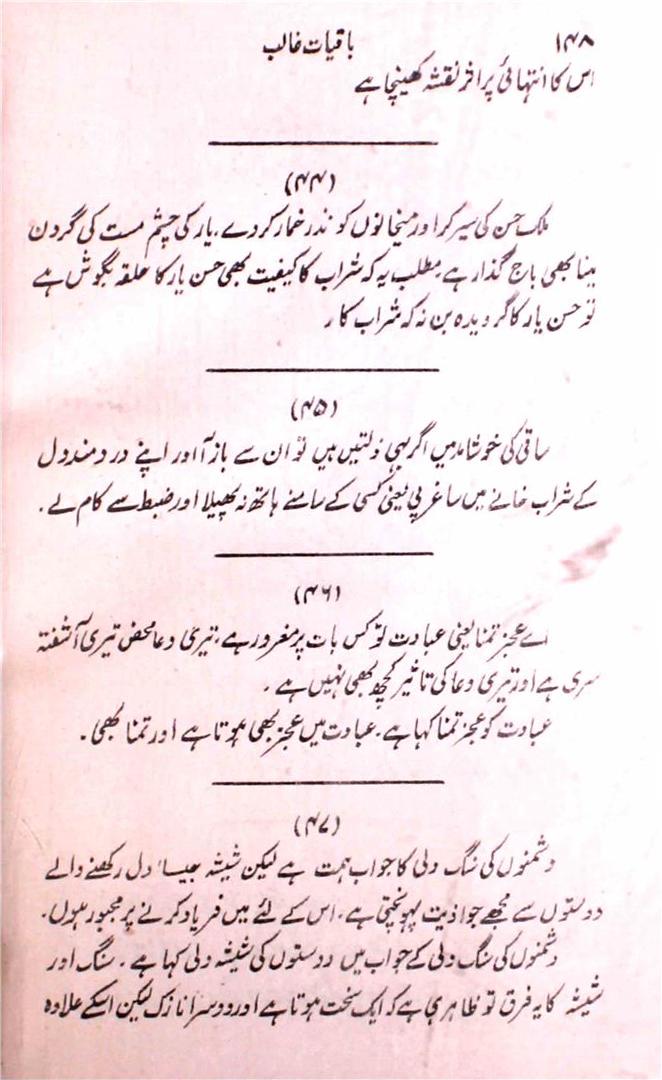 ۱۴۸
باقیات غالب
اس کا انتہائی پر اثر نقشہ کھینچا ہے
(۴۴)
ملک حسن کی سیر کر اور میخانوں کو نذر خمار کر دے۔ یار کی چشم مست کی گردن
مینا بھی باج گذار ہے۔ مطلب یہ کہ شراب کا کیفیت بھی حسن یار کا حلقہ بگوش ہے
تو حسن یار کا گرویدہ بن نہ کہ شراب کا ر
(۴۵)
ساقی کی خوشامد میں اگر یہی ذلتیں ہیں تو ان سے باز آ اور اپنے درد مند دل
کے شراب خانے میں ساغر پی یعنی کسی کے سامنے ہاتھ نہ پھیلا اور ضبط سے کام لے۔
(۴۶)
اے عجز تمنا یعنی عبادت تو کس بات پر مغرور ہے، تیری دعا محض تیری آشفتہ
سری ہے اور تیری دعا کی تاثیر کچھ بھی نہیں ہے۔
عبادت کو عجز تمنا کہا ہے۔ عبادت میں عجز بھی ہوتا ہے اور تمنا بھی۔
(۴۷)
دشمنوں کی سنگ دلی کا جواب ہمت ہے لیکن شیشہ جیسا دل رکھنے والے
دوستوں سے مجھے جو اذیت پہونچتی ہے، اس کے لئے میں فریاد کرنے پر مجبور ہوں۔
دشمنوں کی سنگ دلی کے جواب میں دوستوں کی شیشہ دلی کہا ہے۔ سنگ اور
شیشہ کا یہ فرق تو ظاہری ہے کہ ایک سخت ہوتا ہے اور دوسرا نازک لیکن اسکے علاوہ